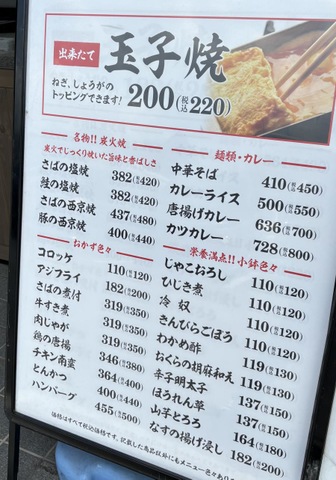 出来たて 玉子焼
ねぎ、しょうがの
トッピングできます! 200(税込220)
名物!! 炭火焼
炭火でじっくり焼いた旨味と香ばしさ
さばの塩焼 382(税込420)
鮭の塩焼 382(税込420)
さばの西京焼 437(税込480)
豚の西京焼 400(税込440)
おかず色々
コロッケ 110(税込120)
アジフライ 182(税込200)
さばの煮付 319(税込350)
牛すき煮 319(税込350)
肉じゃが 319(税込350)
鶏の唐揚 346(税込380)
チキン南蛮 364(税込400)
とんかつ 400(税込440)
ハンバーグ 455(税込500)
麺類・カレー
中華そば 410(税込450)
カレーライス 500(税込550)
唐揚げカレー 636(税込700)
カツカレー 728(税込800)
栄養満点!!小鉢色々
じゃこおろし 110(税込120)
ひじき煮 110(税込120)
冷奴 110(税込120)
きんぴらごぼう 110(税込120)
わかめ酢 119(税込130)
おくらの胡麻和え 119(税込130)
辛子明太子 137(税込150)
ほうれん草 137(税込150)
山芋とろろ 164(税込180)
なすの揚げ浸し 182(税込200)
価格はすべて税込価格です。記載した商品以外にもメニュー色々あり